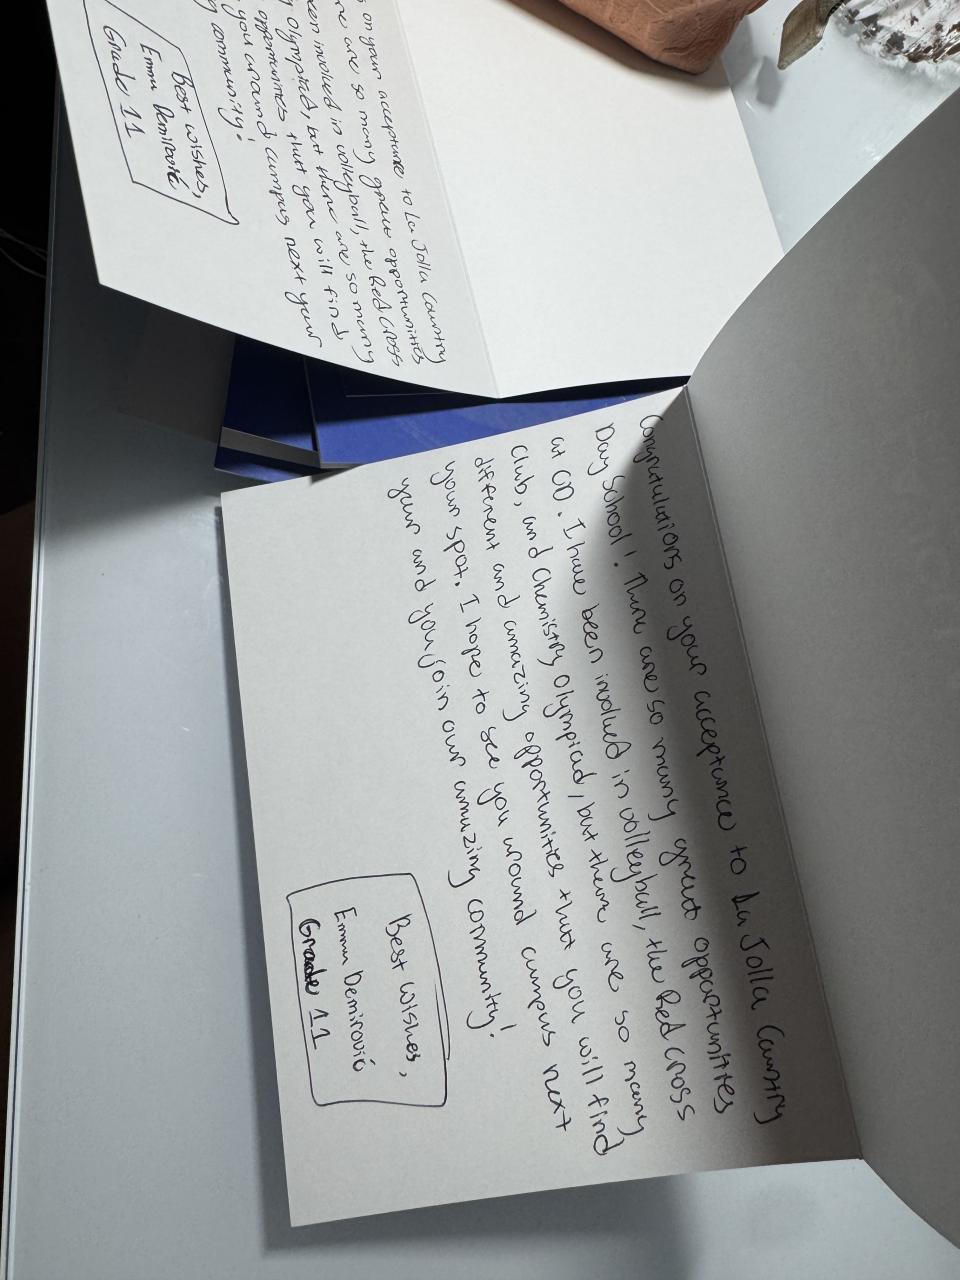 Congratulations on your acceptance to La Jolla Country
Day School! There are so many great opportunities
at CD. I have been involved in volleyball, the Red Cross
Club, and Chemistry Olympiad, but there are so many
different and amazing opportunities that you will find
your spot. I hope to see you around campus next
year and you join our amazing community!
Best wishes,
Emma Demirović
Grade 11
on your acceptance to La Jolla Country
are so many great opportunities
involved in volleyball, the Red Cross
Olympiad, but there are so many
opportunities that you will find
you around campus next year
community!
Best wishes,
Emma Demirović
Grade 11